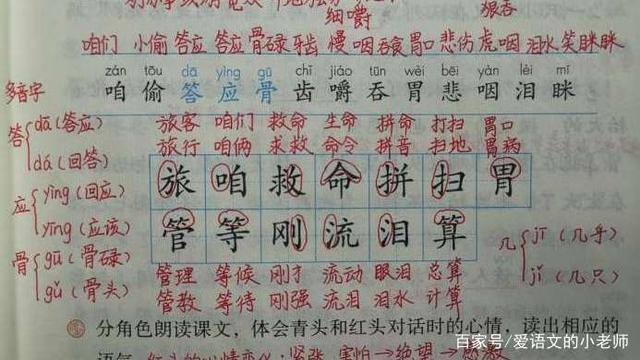 细嚼
狼吞
咱们 小偷 答应 答应 骨碌 牙齿 慢咽 吞食 胃口 悲伤 虎咽 泪水 笑眯眯
zán tōu dā yìng gū chǐ jiáo tūn wèi bēi yàn lèi mī
咱 偷 答 应 骨 齿 嚼 吞 胃 悲 咽 泪 眯
多音字
答 dā(答应)
dá(回答)
应 yìng(回应)
yīng(应该)
骨 gū(骨碌)
gǔ(骨头)
旅客 咱们 救命 生命 拼命 打扫 胃口
旅行 咱俩 求救 命令 拼音 扫地 胃病
旅 咱 救 命 拼 扫 胃
管 等 刚 流 泪 算
几 jī(几乎)
jǐ(几只)
管理 等候 刚才 流动 眼泪 总算
管教 等待 刚强 流泪 泪水 计算
分角色朗读课文,体会青头和红头对话时的心情,读出相应的
语气。
百家号/爱语文的小老师